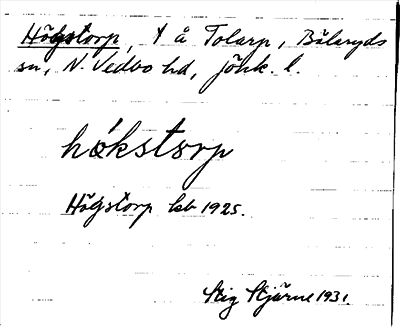 Högstorp, t å Tolarp, Bälaryds
sn, N. Vedbo hd, Jönk. l.
hǿkstorp
Högstorp kb 1925.
Stig Stjärne 1931.